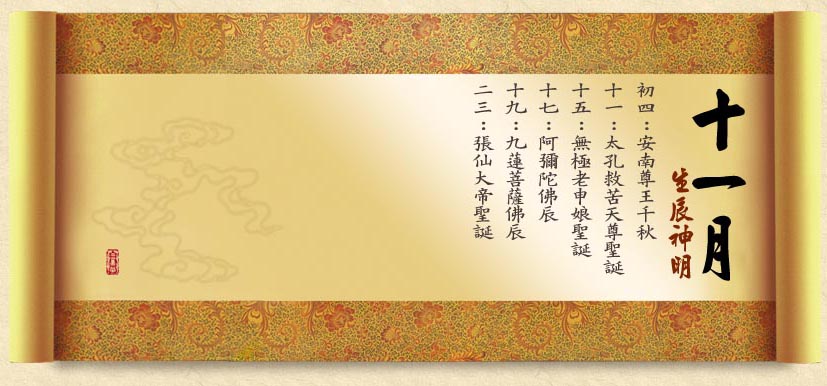 十一月
生辰神明
初四：安南尊王千秋
十一：太孔救苦天尊聖誕
十五：無極老申娘聖誕
十七：阿彌陀佛辰
十九：九蓮菩薩佛辰
二三：張仙大帝聖誕